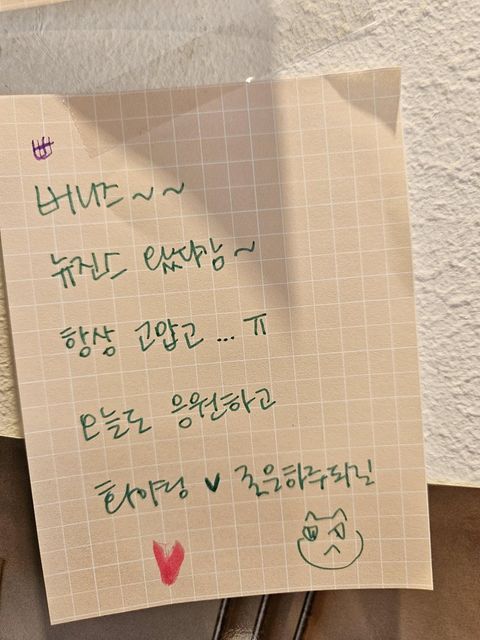 버니즈~~
뉴진스 왔다감~
항상 고맙고... ㅠ
오늘도 응원하고
화이팅 ♥ 좋은하루되길